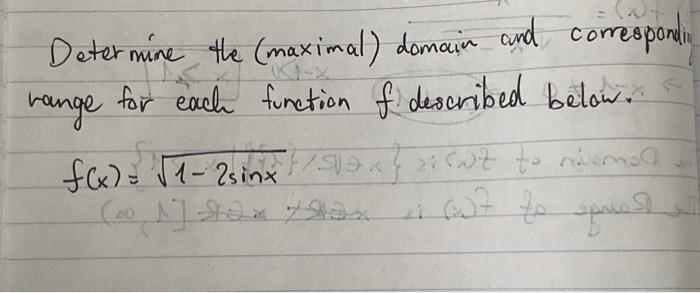 Determine the (maximal) domain and correspondin
range for each function f described below.
f(x) = √1-2sinx